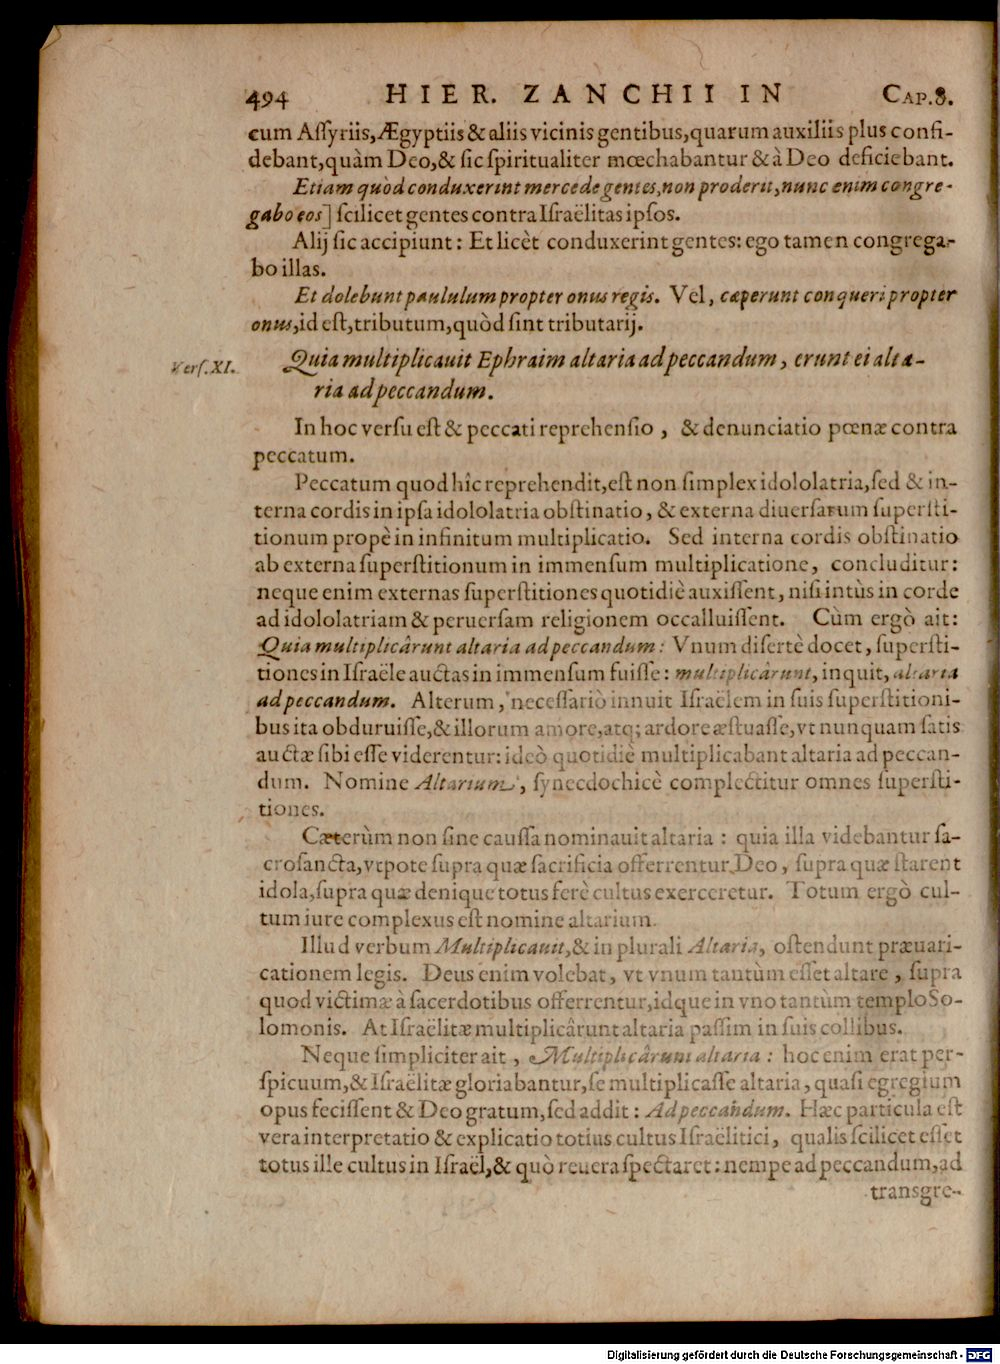 494 HIER. ZANCHII IN CAP.8.
cum Aſſyriis, Ægyptiis & aliis vicinis gentibus, quarum auxiliis plus confi-
debant, quàm Deo, & ſic ſpiritualiter mœchabantur & à Deo deficiebant.
Etiam quòd conduxerint mercede gentes, non proderit, nunc enim congre-
gabo eos] ſcilicet gentes contra Iſraëlitas ipſos.
Alij ſic accipiunt: Et licèt conduxerint gentes: ego tamen congrega-
bo illas.
Et dolebunt paululum propter onus regis. Vel, cœperunt conqueri propter
onus, id eſt, tributum, quòd ſint tributarij.
Verſ. XI. Quia multiplicauit Ephraim altaria ad peccandum, erunt ei alta-
ria ad peccandum.
In hoc verſu eſt & peccati reprehenſio, & denunciatio pœnæ contra
peccatum.
Peccatum quod hîc reprehendit, eſt non ſimplex idololatria, ſed & in-
terna cordis in ipſa idololatria obſtinatio, & externa diuerſarum ſuperſti-
tionum propè in infinitum multiplicatio. Sed interna cordis obſtinatio
ab externa ſuperſtitionum in immenſum multiplicatione, concluditur:
neque enim externas ſuperſtitiones quotidiè auxiſſent, niſi intùs in corde
ad idololatriam & peruerſam religionem occalluiſſent. Cùm ergò ait:
Quia multiplicârunt altaria ad peccandum: Vnum diſertè docet, ſuperſti-
tiones in Iſraële auctas in immenſum fuiſſe: multiplicârunt, inquit, altaria
ad peccandum. Alterum, neceſſariò innuit Iſraëlem in ſuis ſuperſtitioni-
bus ita obduruiſſe, & illorum amore, atq; ardore æſtuaſſe, vt nunquam ſatis
auctæ ſibi eſſe viderentur: ideò quotidiè multiplicabant altaria ad peccan-
dum. Nomine Altarium, ſynecdochicè complectitur omnes ſuperſti-
tiones.
Cæterùm non ſine cauſſa nominauit altaria: quia illa videbantur ſa-
croſancta, vtpote ſupra quæ ſacrificia offerrentur Deo, ſupra quæ ſtarent
idola, ſupra quæ denique totus ferè cultus exerceretur. Totum ergò cul-
tum iure complexus eſt nomine altarium.
Illud verbum Multiplicauit, & in plurali Altaria, oſtendunt præuari-
cationem legis. Deus enim volebat, vt vnum tantùm eſſet altare, ſupra
quod victimæ à ſacerdotibus offerrentur, idque in vno tantùm templo So-
lomonis. At Iſraëlitæ multiplicârunt altaria paſſim in ſuis collibus.
Neque ſimpliciter ait, Multiplicârunt altaria: hoc enim erat per-
ſpicuum, & Iſraëlitæ gloriabantur, ſe multiplicaſſe altaria, quaſi egregium
opus feciſſent & Deo gratum, ſed addit: Ad peccandum. Hæc particula eſt
vera interpretatio & explicatio totius cultus Iſraëlitici, qualis ſcilicet eſſet
totus ille cultus in Iſraël, & quò reuera ſpectaret: nempe ad peccandum, ad
transgre-
Digitalisierung gefördert durch die Deutsche Forschungsgemeinschaft - DFG